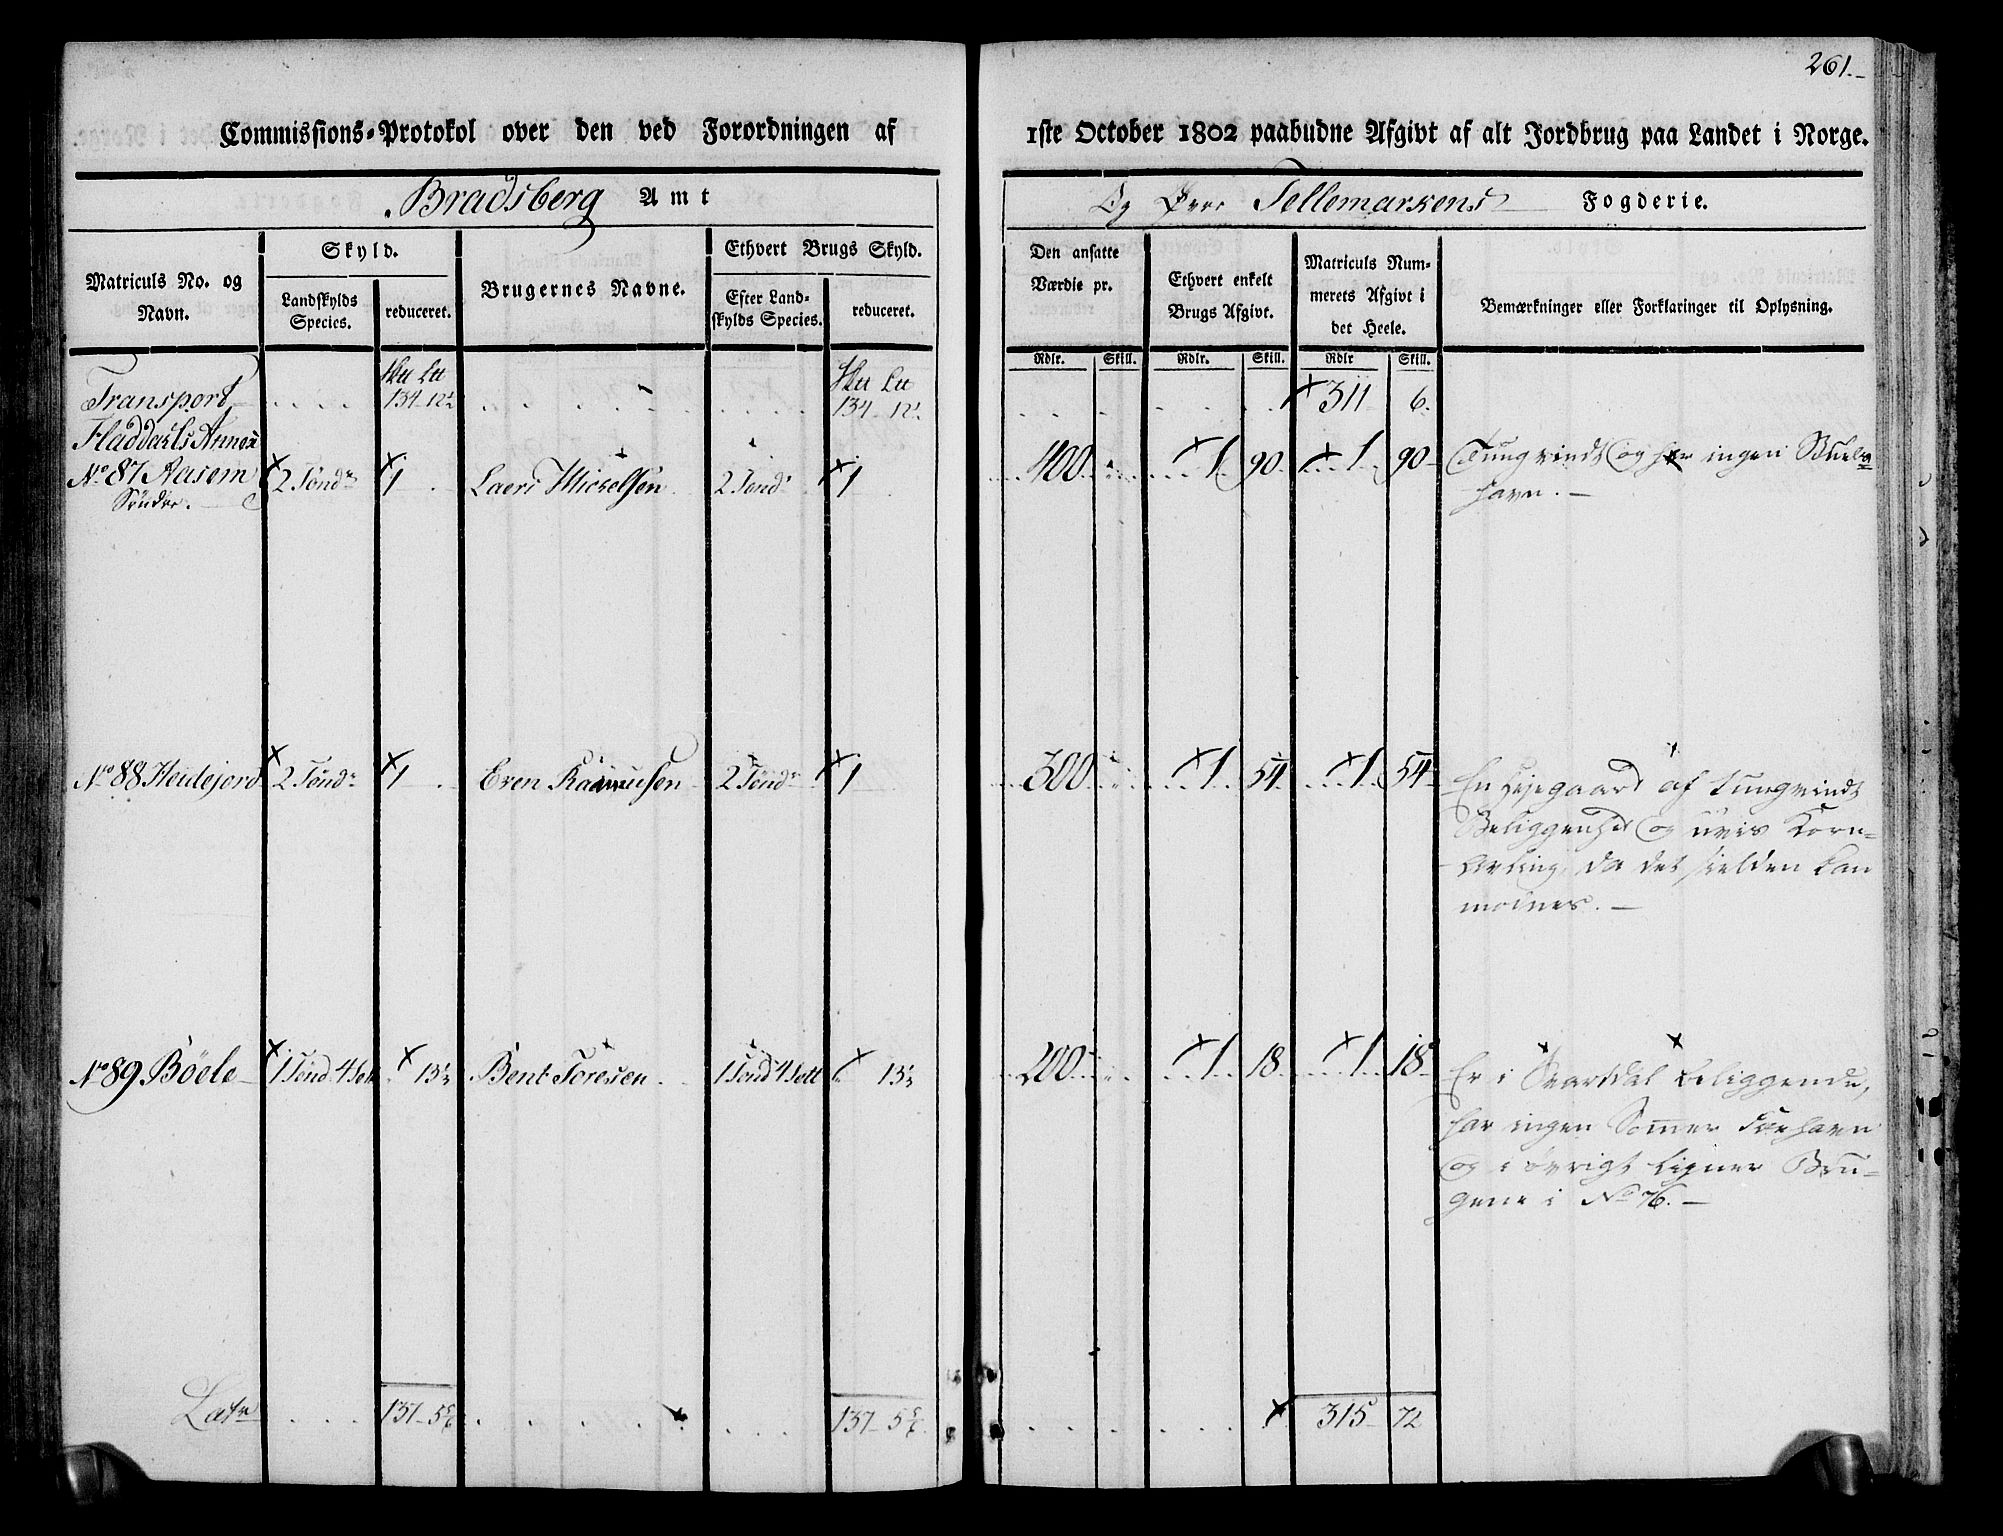 261.
Commissions-Protokol over den ved Forordningen af 1ste October 1802 paabudne Afgivt af alt Jordbrug paa Landet i Norge.
Bradsberg Amt
Og Øvre Tellemarkens Fogderie.
Matriculs No. og Navn.
Skyld.
Landskylds Species.
reduceret.
Brugernes Navne.
Ethvert Brugs Skyld.
Efter Landskylds Species.
reduceret.
Den ansatte Værdie pr.
Ethvert enkelt Brugs Afgivt.
Matriculs Nummerets Afgivt i det Heele.
Bemærkninger eller Forklaringer til Oplysning.
Rdlr. Skill. Rdlr. Skill. Rdlr Skill.
Transport 134 12½ 134 12½ 311 6.
Fladdahls Annex
No 87 Aasem 2 Tønd 1 Laers Mickelsen 2 Tønd 1 400 1 90 1 90 Tungvindt og har ingen
Søndre. havn.
No 88 Heidejord 2 Tønd 1 Even Rasmusen 2 Tønd 1 300 1 54 1 54 En af tungvindt
Beliggenhed og uvis Korn-
Avling, da det sielden kan
modnes.
No 89 Böele 1 Tønd 4 Sett 13⅓ Bent Toresen 1 Tønd 4 Sett 13⅓ 200 1 18 1 18 Er i Svartdal beliggende,
har ingen Sommer Føehavn
og i øvrigt ligner Bru-
gene i No 76.
Latr 137 5⅚ 137 5⅚ 315 72